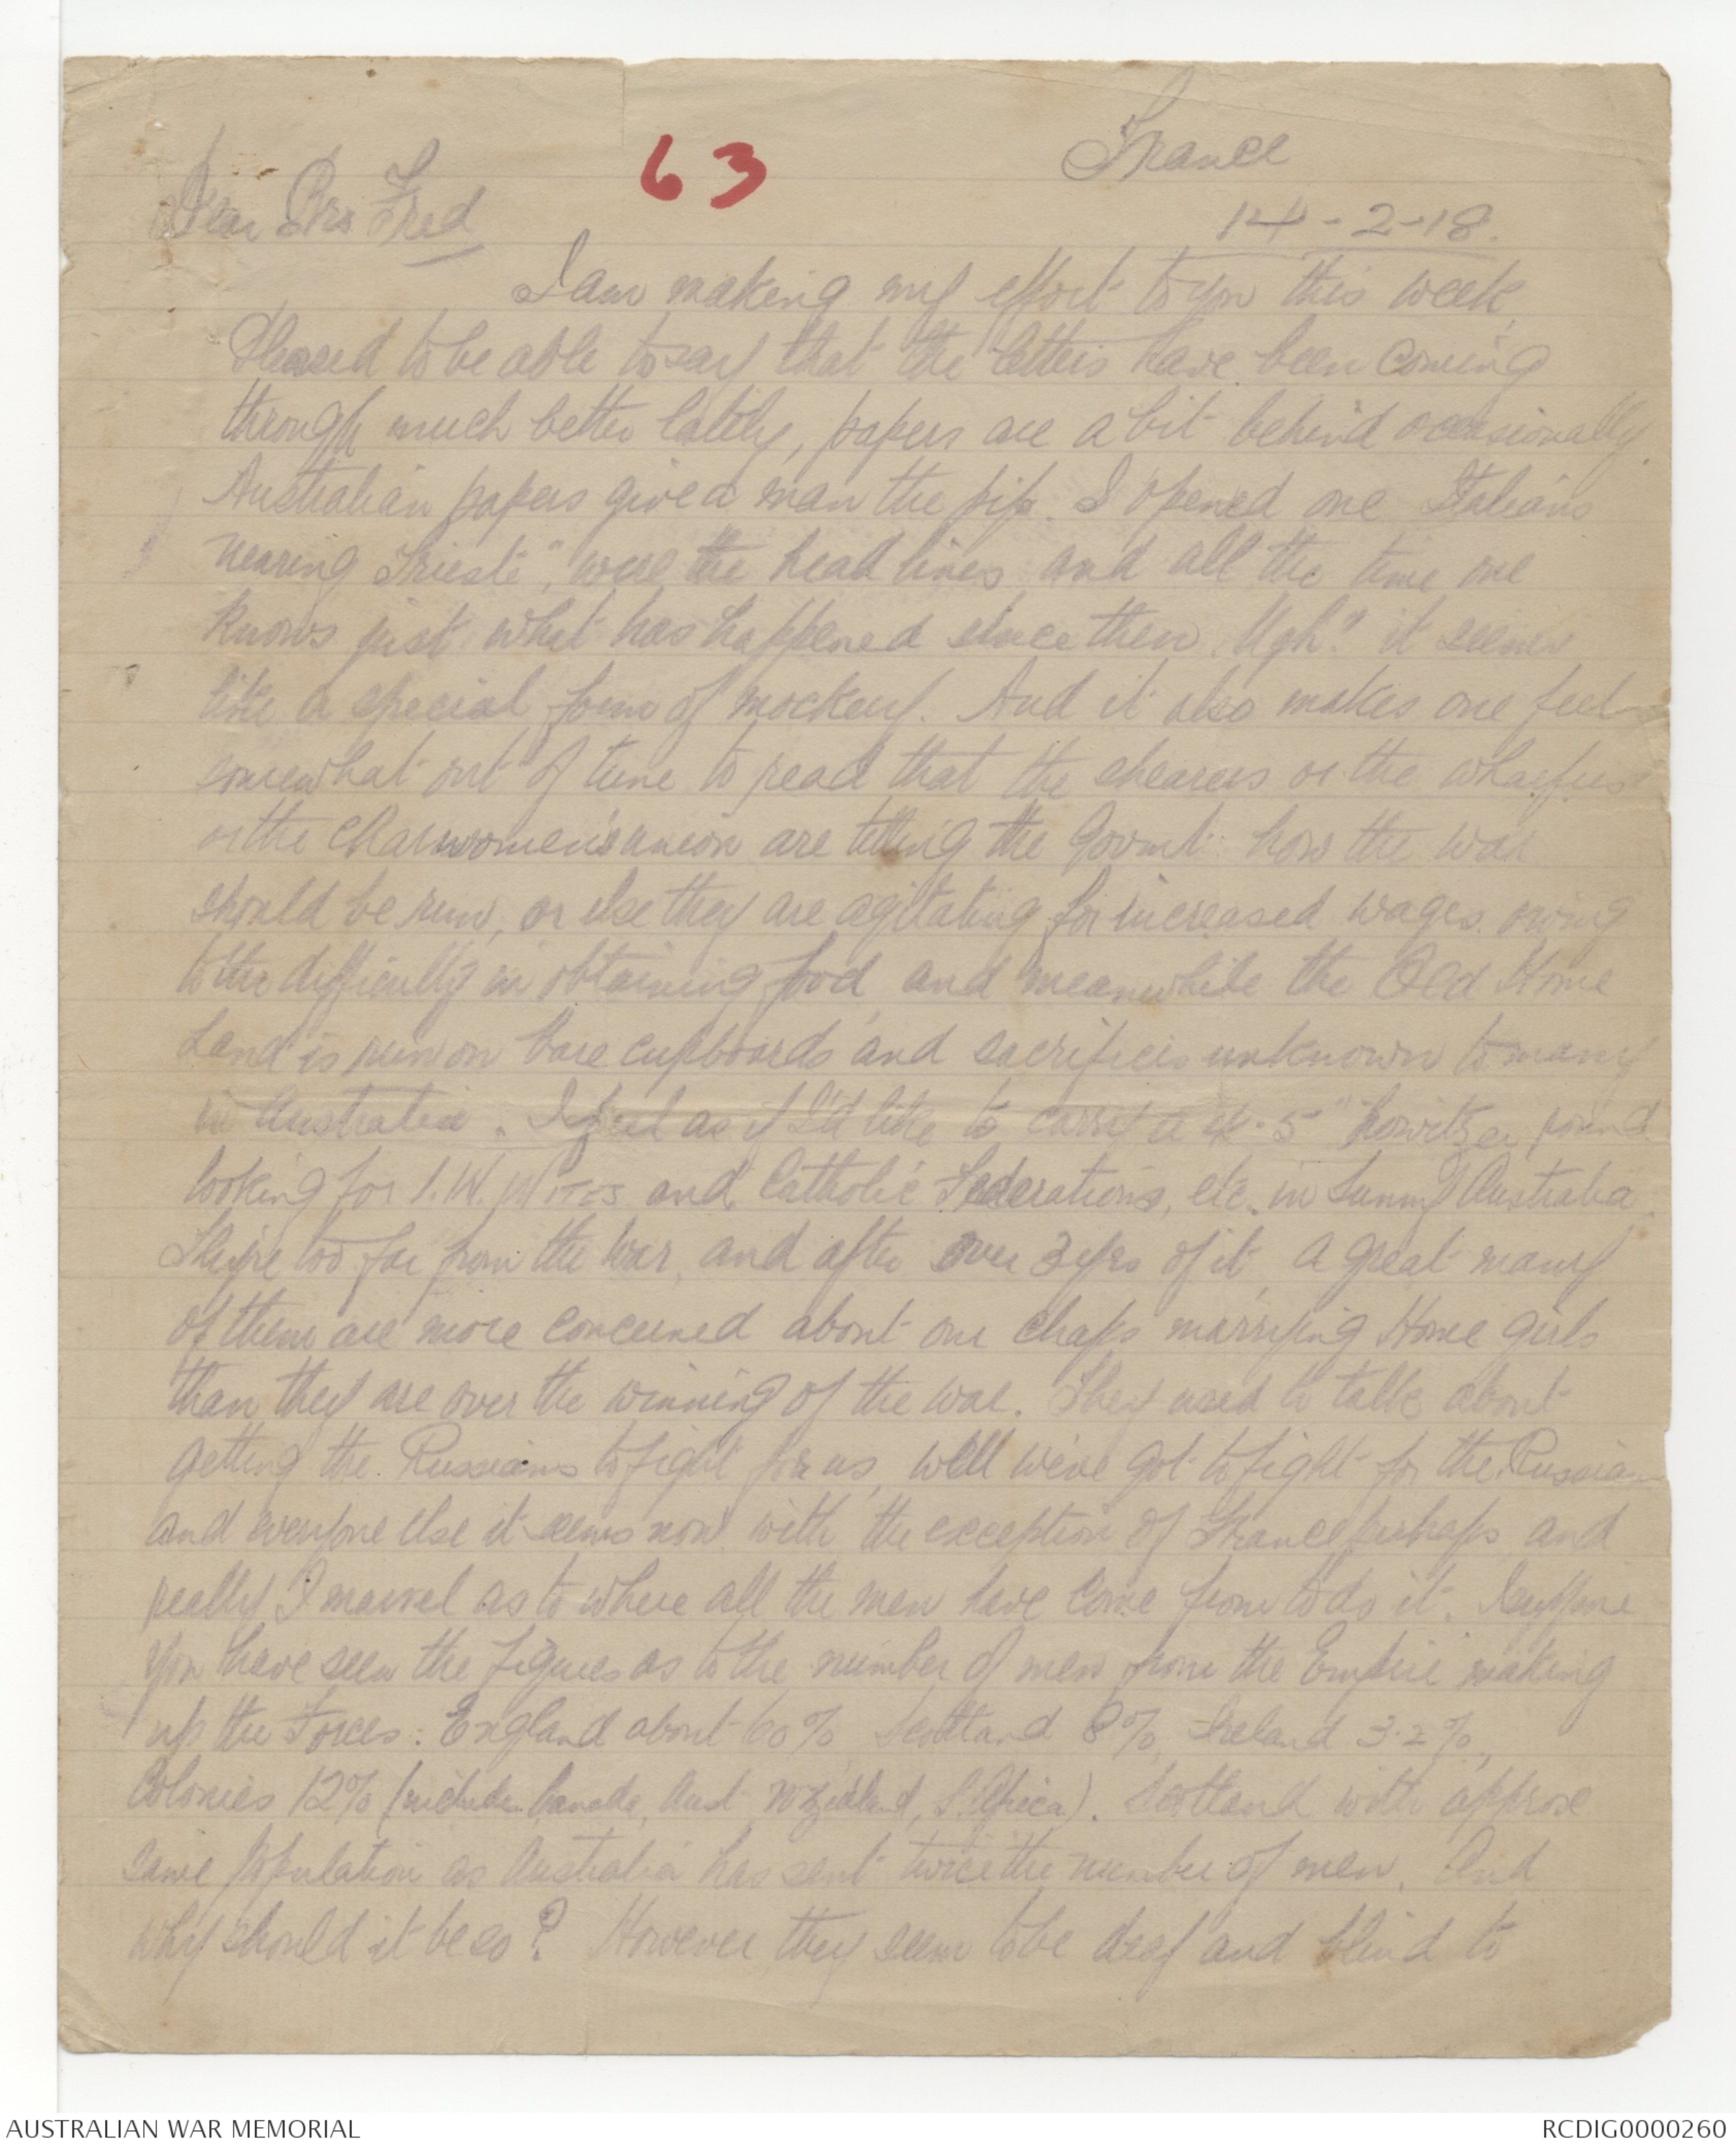 63
France
Dear Bro Fred
14-2-18.
I am making my effort to you this week,
Pleased to be able to say that the letters have been coming
through much better lately, papers are a bit behind occasionally.
Australian papers give a man the pip. I opened one "Italians
nearing Trieste", were the head lines and all the time one
knows just what has happened since then. Ugh!! it seems
like a special form of mockery. And it also makes one feel
somewhat out of tune to read that the shearers or the wharfies
or the charwomen's union are telling the Govmt how the war
should be run, or else they are agitating for increased wages owing
to the difficulty in obtaining food, and meanwhile the Old Home
Land is run on bare cupboards and sacrifices unknown to many
in Australia. I feel as if I'd like to carry a 4.5" howitzer round
looking for I.W.W. and Catholic Federations, etc. in Sunny Australia.
They're too far from the war, and after over 3 yrs of it, a great many
of them are more concerned about our chaps marrying Home girls
than they are over the winning of the war. They used to talk about
getting the Russians to fight for us, well we've got to fight for the Russian
and everyone else it seems now with the exception of France perhaps, and
really I marvel as to where all the men have come from to do it. I suppose
you have seen the figures as to the number of men from the Empire making
up the Forces: England about 60% Scotland 8%, Ireland 3.2%,
Colonies 12% (includes Canada, Aust, N Zealand, S. Africa). Scotland with approx
same population as Australia has sent twice the number of men. And
why should it be so? However they seem to be deaf and blind to
AUSTRALIAN WAR MEMORIAL
RCDIG0000260